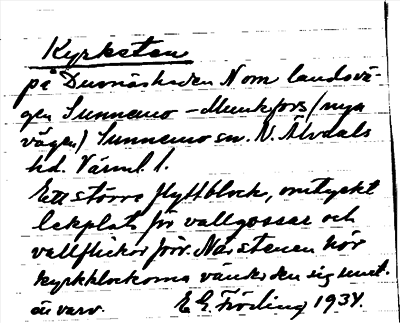 Kyrksten
på Dusnäsheden N om landsvä-
gen Sunnemo – Munkfors (nya
vägen) Sunnemo sn. N. Älvdals
hd. Värml. l.
Ett större flyttblock, omtyckt
lekplats för vallgossar och
vallflickor förr. När stenen hör
kyrkklockorna vänder den sig runt.
ett varv. E G Fröding 1934.